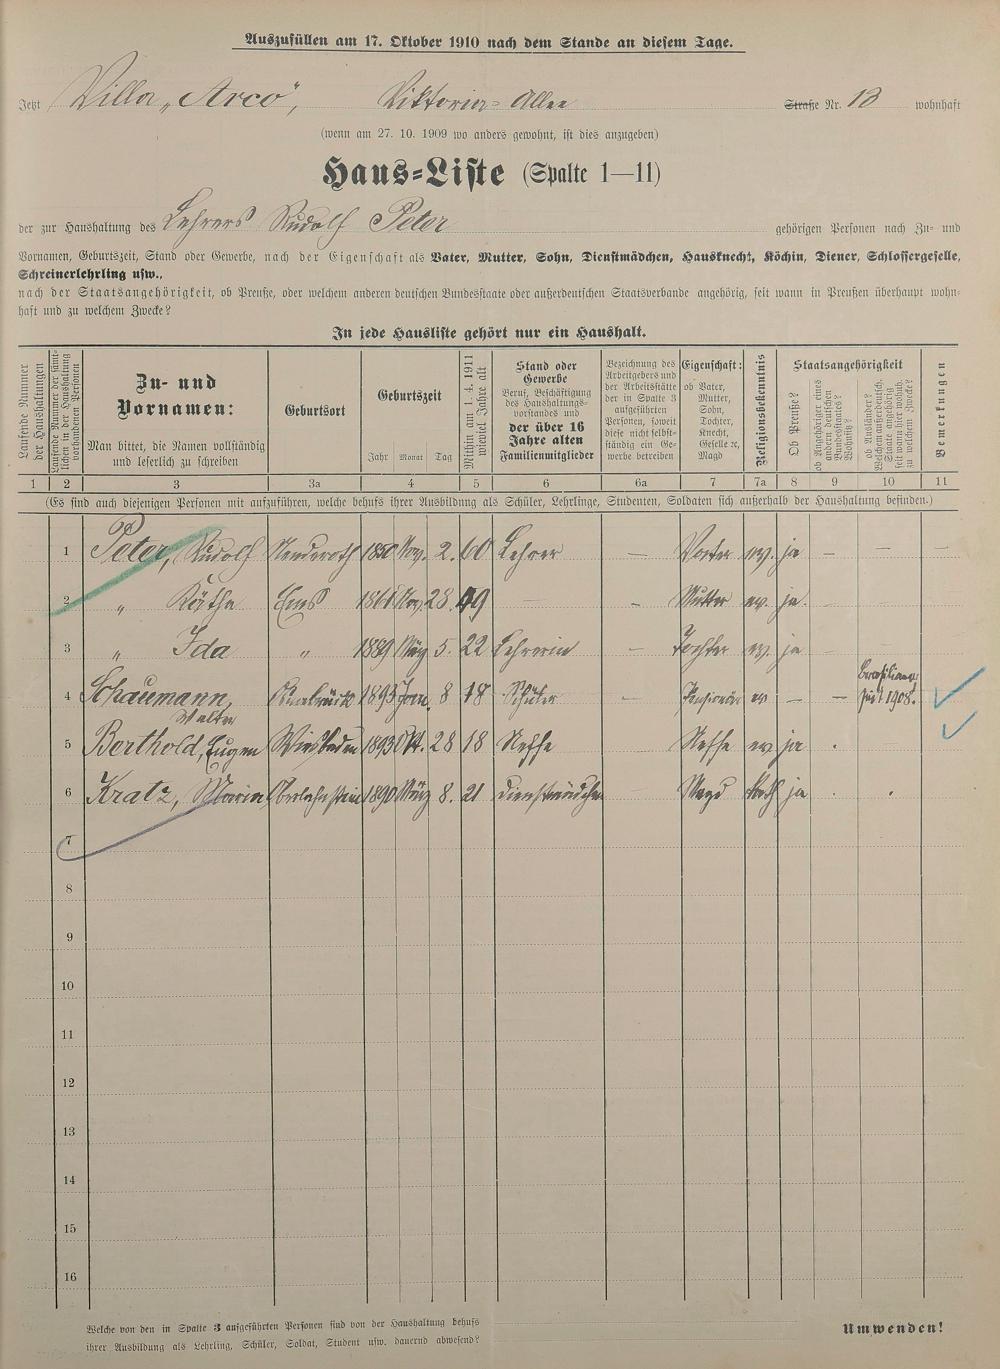 Auszufüllen am 17. Oktober 1910 nach dem Stande an diesem Tage.
Jetzt Villa „Arco“, Viktoria-Allee Straße Nr. 13 wohnhaft
(wenn am 27. 10. 1909 wo anders gewohnt, ist dies anzugeben)
Haus-Liste (Spalte 1—11)
der zur Haushaltung des Lehrers Rudolf Peter gehörigen Personen nach Zu- und
Vornamen, Geburtszeit, Stand oder Gewerbe, nach der Eigenschaft als Vater, Mutter, Sohn, Dienstmädchen, Hausknecht, Köchin, Diener, Schlossergeselle,
Schreinerlehrling usw.,
nach der Staatsangehörigkeit, ob Preuße, oder welchem anderen deutschen Bundesstaate oder außerdeutschen Staatsverbande angehörig, seit wann in Preußen überhaupt wohn-
haft und zu welchem Zwecke?
In jede Hausliste gehört nur ein Haushalt.
Laufende Nummer
der Haushaltungen
Laufende Nummer der sämt-
lichen in der Haushaltung
vorhandenen Personen
Zu- und
Vornamen:
Man bittet, die Namen vollständig
und leserlich zu schreiben
Geburtsort
Geburtszeit
Jahr Monat Tag
Mithin am 1. 4. 1911
wieviel Jahre alt
Stand oder
Gewerbe
Beruf, Beschäftigung
des Haushaltungs-
vorstandes und
der über 16
Jahre alten
Familienmitglieder
Bezeichnung des
Arbeitgebers und
der Arbeitsstätte
der in Spalte 3
aufgeführten
Personen, soweit
diese nicht selbst-
ständig ein Ge-
werbe betreiben
Eigenschaft:
ob Vater,
Mutter,
Sohn,
Tochter,
Knecht,
Geselle ꝛc,
Magd
Religionsbekenntnis
Staatsangehörigkeit
Ob Preuße?
ob Angehöriger eines
andern deutschen
Bundesstaates?
Wohnsitz?
ob Ausländer?
Welchem außerdeutsch.
Staate angehörig
seit wann hier wohnh.
zu welchem Zwecke?
Bemerkungen
1 2 3 3a 4 5 6 6a 7 7a 8 9 10 11
(Es sind auch diejenigen Personen mit aufzuführen, welche behufs ihrer Ausbildung als Schüler, Lehrlinge, Studenten, Soldaten sich außerhalb der Haushaltung befinden.)
1 Peter, Rudolf 1850 Nov. 2. 60 Lehrer — Vater ev. ja — — —
2 „ Käthe Ems 1861 Nov. 28. 49 — Mutter ev. ja.
3 „ Ida „ 1889 März 5. 22 Lehrerin — Tochter ev. ja
4 Schaumann, Walter Osnabrück 1893 Jan. 8 18 Schüler Pensionär ev — — Brasilianer seit 1908.
5 Berthold, Eugen Wiesbaden 1893 Okt. 28 18 Neffe Neffe ev ja
6 Kratz, Maria Oberlahnstein 1890 März 8. 21 Dienstmädchen Magd kath ja
7
8
9
10
11
12
13
14
15
16
Welche von den in Spalte 3 aufgeführten Personen sind von der Haushaltung behufs
ihrer Ausbildung als Lehrling, Schüler, Soldat, Student usw. dauernd abwesend?
Umwenden!